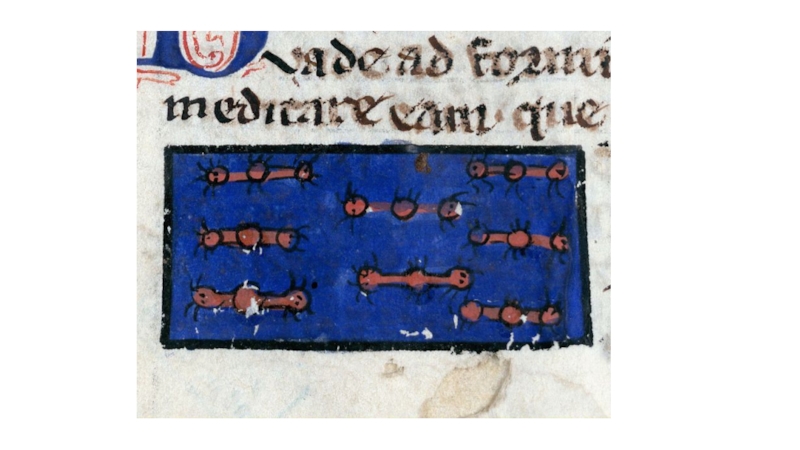 vade ad formi
meditare eam· que